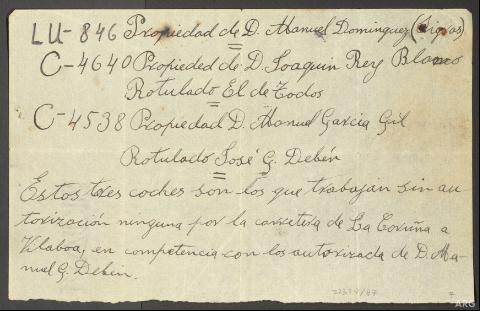 LU-846 Propiedad de D. Manuel Dominguez (Sigras)
C-4640 Propiedad de D. Joaquin Rey Blanco
Rotulado El de Todos
C-4538 Propiedad D. Manuel Garcia Gil
Rotulado José G. Debén
Estos tres coches son los que trabajan sin au-
torización ninguna por la carretera de La Coruña a
Vilaboa, en competencia con los autorizada de D. Ma-
nuel G. Debén.
ARG